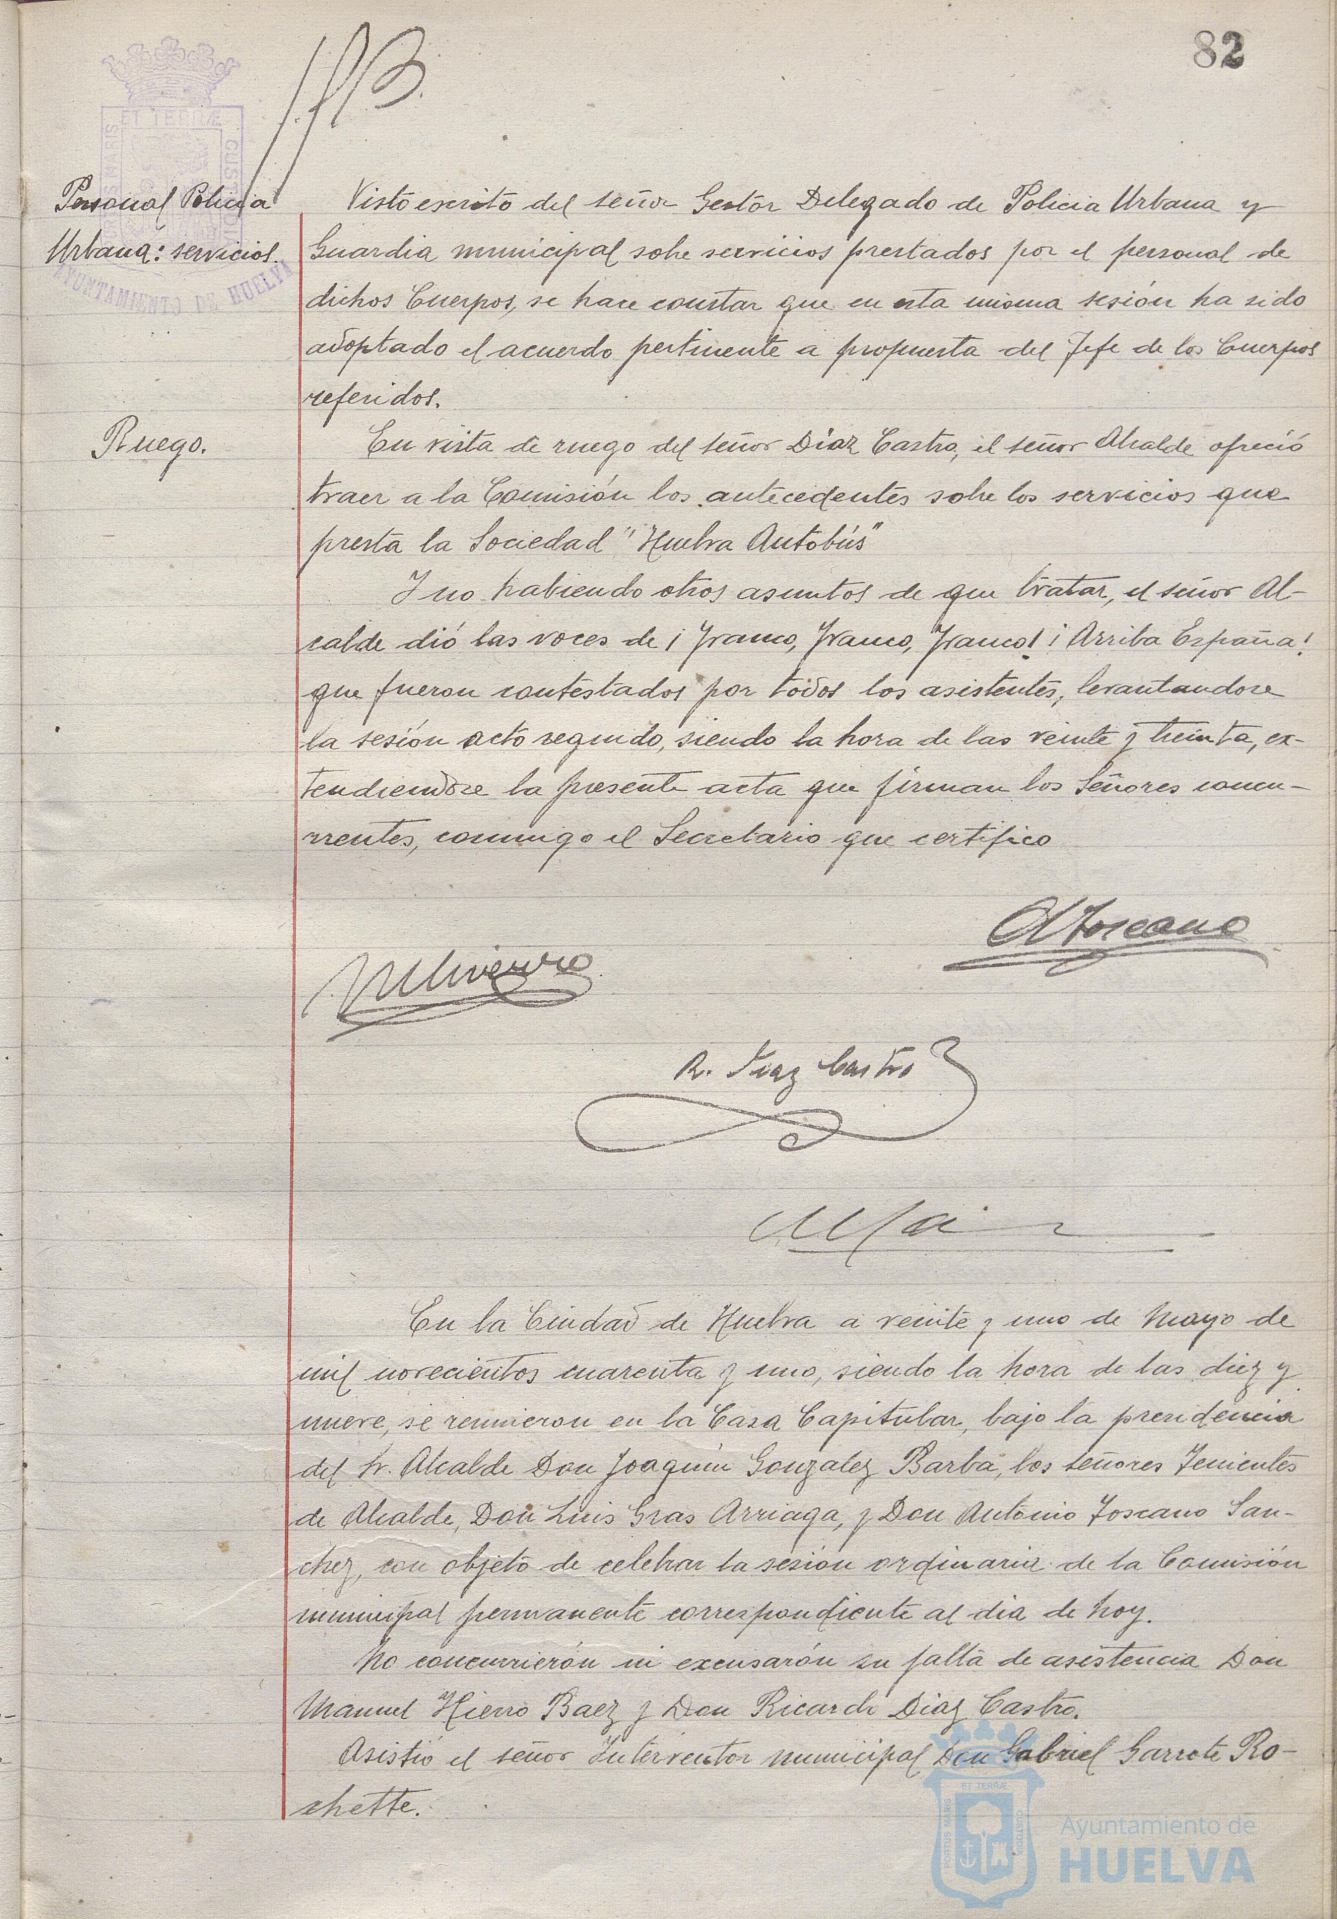 82
Personal Policia
Urbana: servicios.
Visto escrito del señor Gestor Delegado de Policia Urbana y
Guardia municipal sobre servicios prestados por el personal de
dichos Cuerpos, se hace constar que en esta misma sesión ha sido
adoptado el acuerdo pertinente a propuesta del Jefe de los Cuerpos
referidos.
Ruego.
En vista de ruego del señor Díaz Castro, el señor Alcalde ofreció
traer a la Comisión los antecedentes sobre los servicios que
presta la Sociedad "Huelva Autobús"
Y no habiendo otros asuntos de que tratar, el señor Al-
calde dió las voces de ¡Franco, Franco, Franco! ¡Arriba España!
que fueron contestados por todos los asistentes, levantandose
la sesión acto seguido, siendo la hora de las veinte y treinta, ex-
tendiendose la presente acta que firman los Señores concu-
rrentes, conmigo el Secretario que certifico
A Toscano
R. Diaz Castro
En la Ciudad de Huelva a veinte y uno de Mayo de
mil novecientos cuarenta y uno, siendo la hora de las diez y
nueve, se reunieron en la Casa Capitular, bajo la presidencia
del Sr. Alcalde Don Joaquín Gonzalez Barba, los señores Tenientes
de Alcalde, Don Luis Gras Arriaga, y Don Antonio Toscano San-
chez, con objeto de celebrar la sesión ordinaria de la Comisión
municipal permanente correspondiente al dia de hoy.
No concurrierón ni excusarón su falta de asistencia Don
Manuel Hierro Baez y Don Ricardo Diaz Castro.
Asistió el señor Interventor municipal Don Gabriel Garrote Ro-
chette.
AYUNTAMIENTO DE HUELVA
Ayuntamiento de
HUELVA